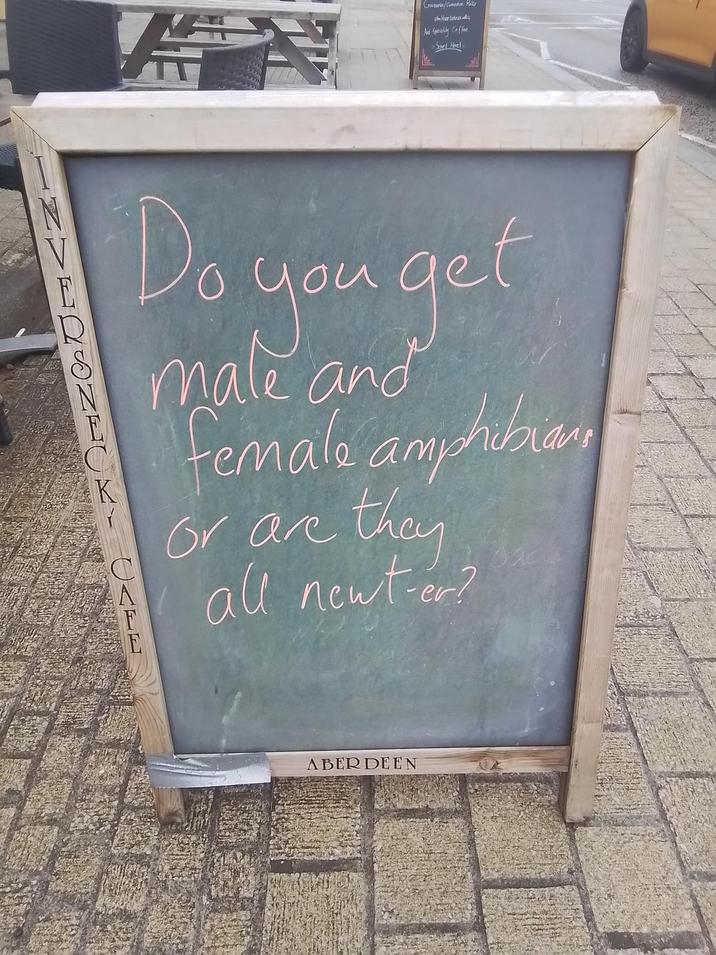 And Speciality Coffee
Do you get
male and
female amphibians
or are they
all newt-er?
INVERSNECKY CAFE
ABERDEEN